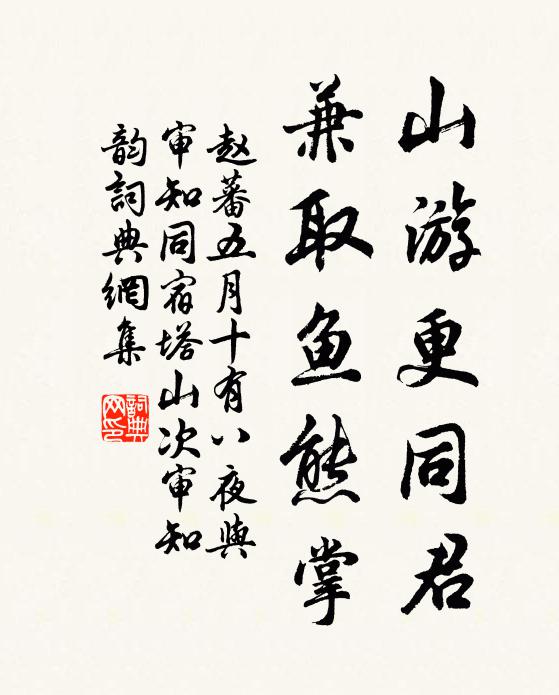 山游更同君
兼取鱼熊掌
赵蕃五月十有八夜與
审知同宿塔山次审知
韵詞典網集
詞典
网印